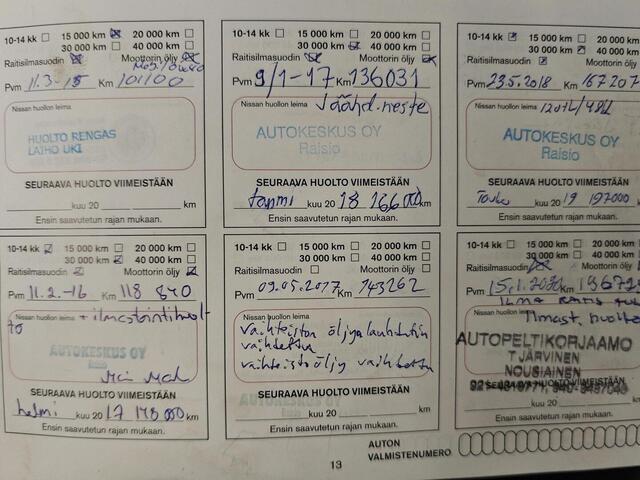 10-14 kk 15 000 km 20 000 km
30 000 km 40 000 km
Raitisilmasuodin Moottorin öljy
Pvm 11.3.-15 Km 101100
Nissan huollon leima
HUOLTO RENGAS
LAIHO UKI
SEURAAVA HUOLTO VIIMEISTÄÄN
kuu 20 km
Ensin saavutetun rajan mukaan.
10-14 kk 15 000 km 20 000 km
30 000 km 40 000 km
Raitisilmasuodin Moottorin öljy
Pvm 11.2.-16 Km 118 840
Nissan huollon leima + ilmastointihuolto
AUTOKESKUS OY
SEURAAVA HUOLTO VIIMEISTÄÄN
helmi kuu 20 17 148 000 km
Ensin saavutetun rajan mukaan.
10-14 kk 15 000 km 20 000 km
30 000 km 40 000 km
Raitisilmasuodin Moottorin öljy
Pvm 9/1-17 Km 136031
Nissan huollon leima Jäähd.neste
AUTOKESKUS OY
Raisio
SEURAAVA HUOLTO VIIMEISTÄÄN
tammi 18 166000 km
Ensin saavutetun rajan mukaan.
10-14 kk 15 000 km 20 000 km
30 000 km 40 000 km
Raitisilmasuodin Moottorin öljy
Pvm 09.05.2017 Km 143262
Nissan huollon leima
vaihteiston öljynlauhdutin
vaihdettu
vaihteistoöljy vaihdettu
AUTOKESKUS OY
SEURAAVA HUOLTO VIIMEISTÄÄN
kuu 20 km
Ensin saavutetun rajan mukaan.
10-14 kk 15 000 km
30 000 km
Raitisilmasuodin Moottorin öljy
Pvm 23.5.2018 Km 167207
Nissan huollon leima
AUTOKESKUS OY
Raisio
SEURAAVA HUOLTO VIIMEISTÄÄN
Touko 19 197000
Ensin saavutetun rajan mukaan.
10-14 kk 15 000 km 20 000
30 000 km 40 000
Raitisilmasuodin Moottorin öljy
Pvm Km
ILMA
Nissan huollon leima Ilmast. huolto
AUTOPELTIKORJAAMO
T JÄRVINEN
NOUSIAINEN
SEURAAVA HUOLTO VIIMEISTÄÄN
kuu 20
Ensin saavutetun rajan mukaan.
AUTON
VALMISTENUMERO
13